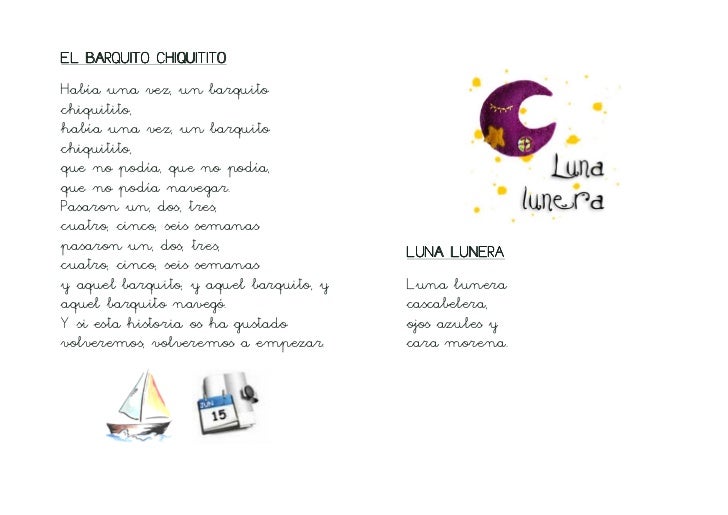 EL BARQUITO CHIQUITITO
Había una vez, un barquito
chiquitito,
había una vez, un barquito
chiquitito,
que no podía, que no podía,
que no podía navegar.
Pasaron un, dos, tres,
cuatro, cinco, seis semanas
pasaron un, dos, tres,
cuatro, cinco, seis semanas
y aquel barquito, y aquel barquito, y
aquel barquito navegó.
Y si esta historia os ha gustado
volveremos, volveremos a empezar.
JUN
15
Luna
lunera
LUNA LUNERA
Luna lunera
cascabelera,
ojos azules y
cara morena.